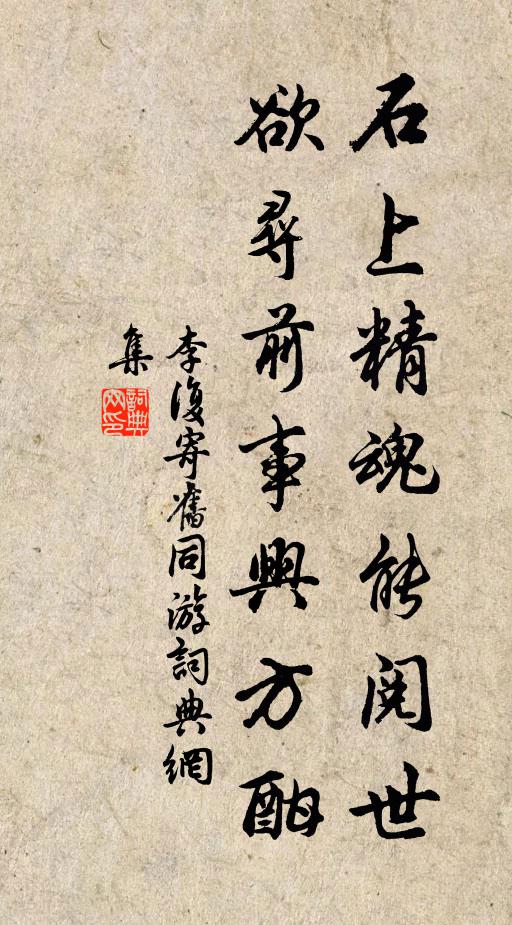 石上精魂能閱世
欲尋前事興方酣
李復寄舊同游詞典網
集
詞典
網印